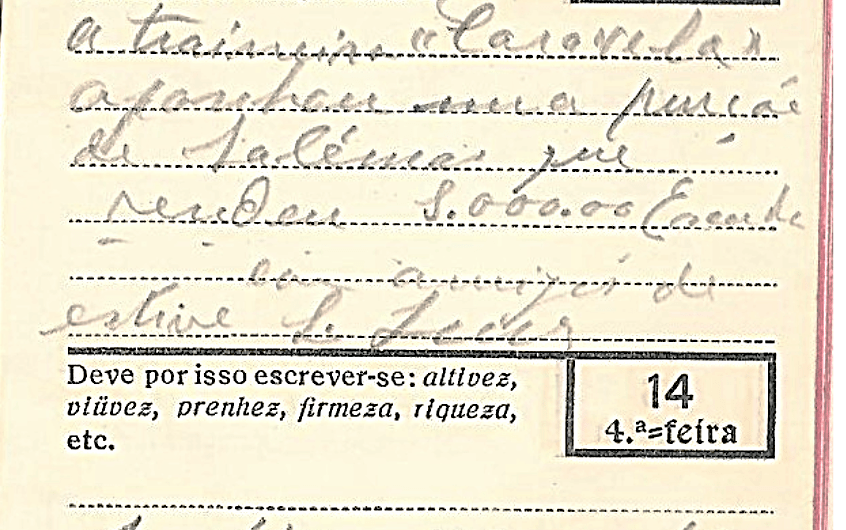 a traineira «Caravela»
apanhou uma porção
de Salémas que
rendeu 8.000.00
com amigos de
estive S.
Deve por isso escrever-se: altivez,
viüvez, prenhez, firmeza, riqueza,
etc.
14
4.ª=feira